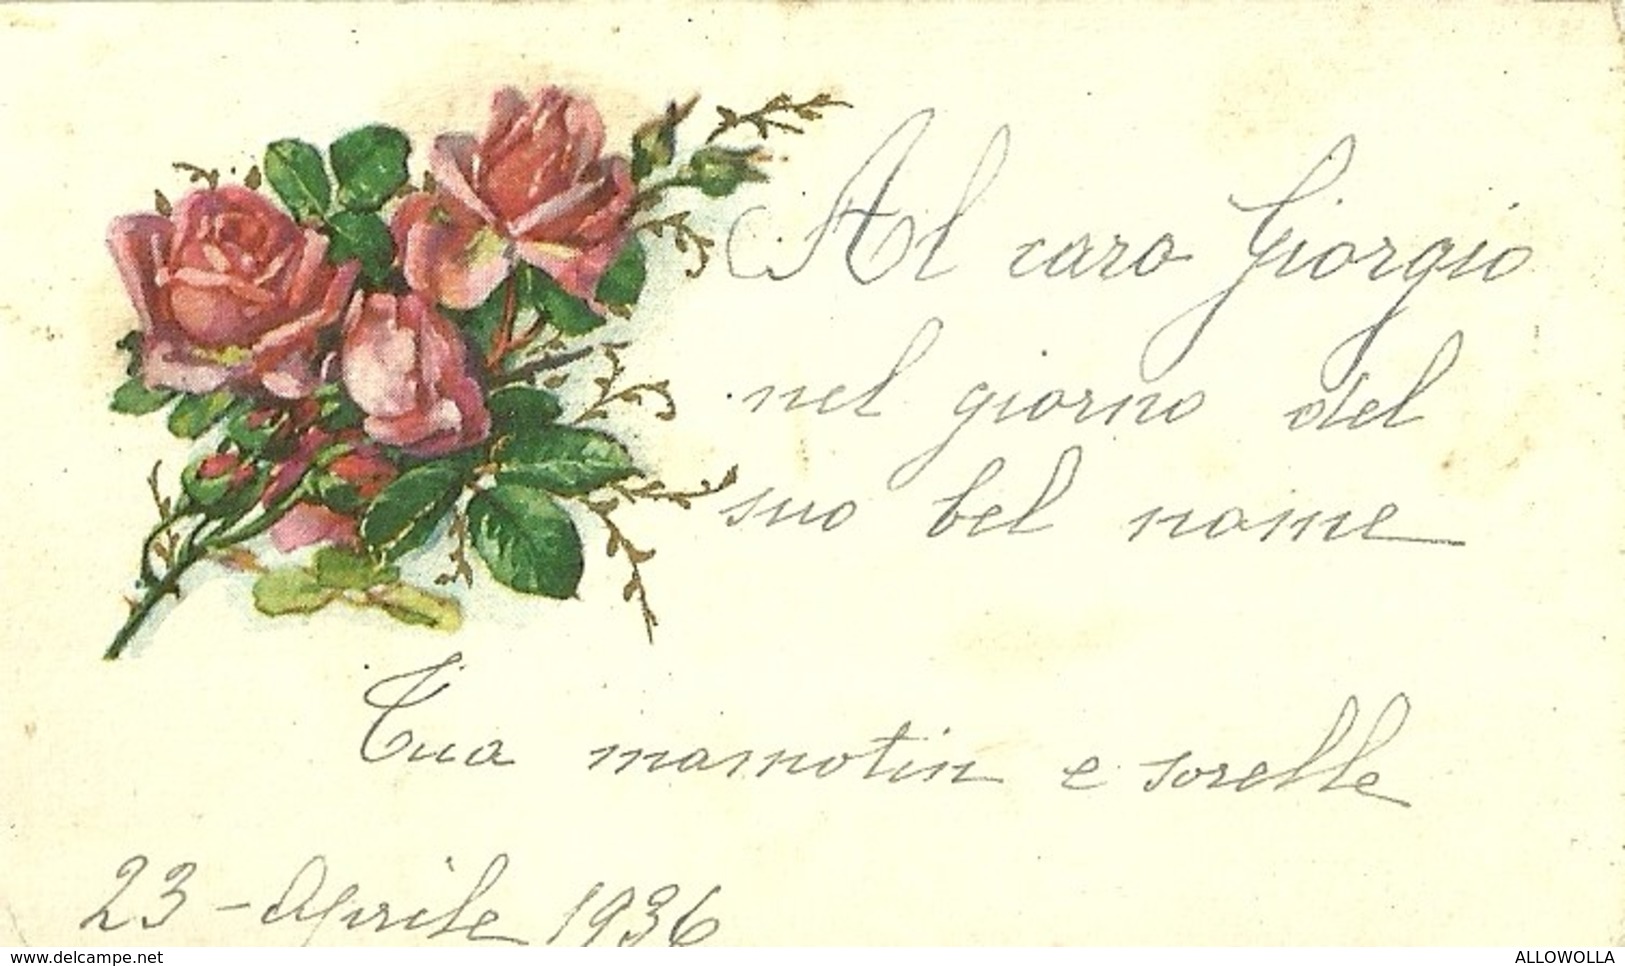 Al caro Giorgio
nel giorno del
suo bel nome
Tua mamotin e sorelle
23 - Aprile 1936
www.delcampe.net
ALLOWOLLA